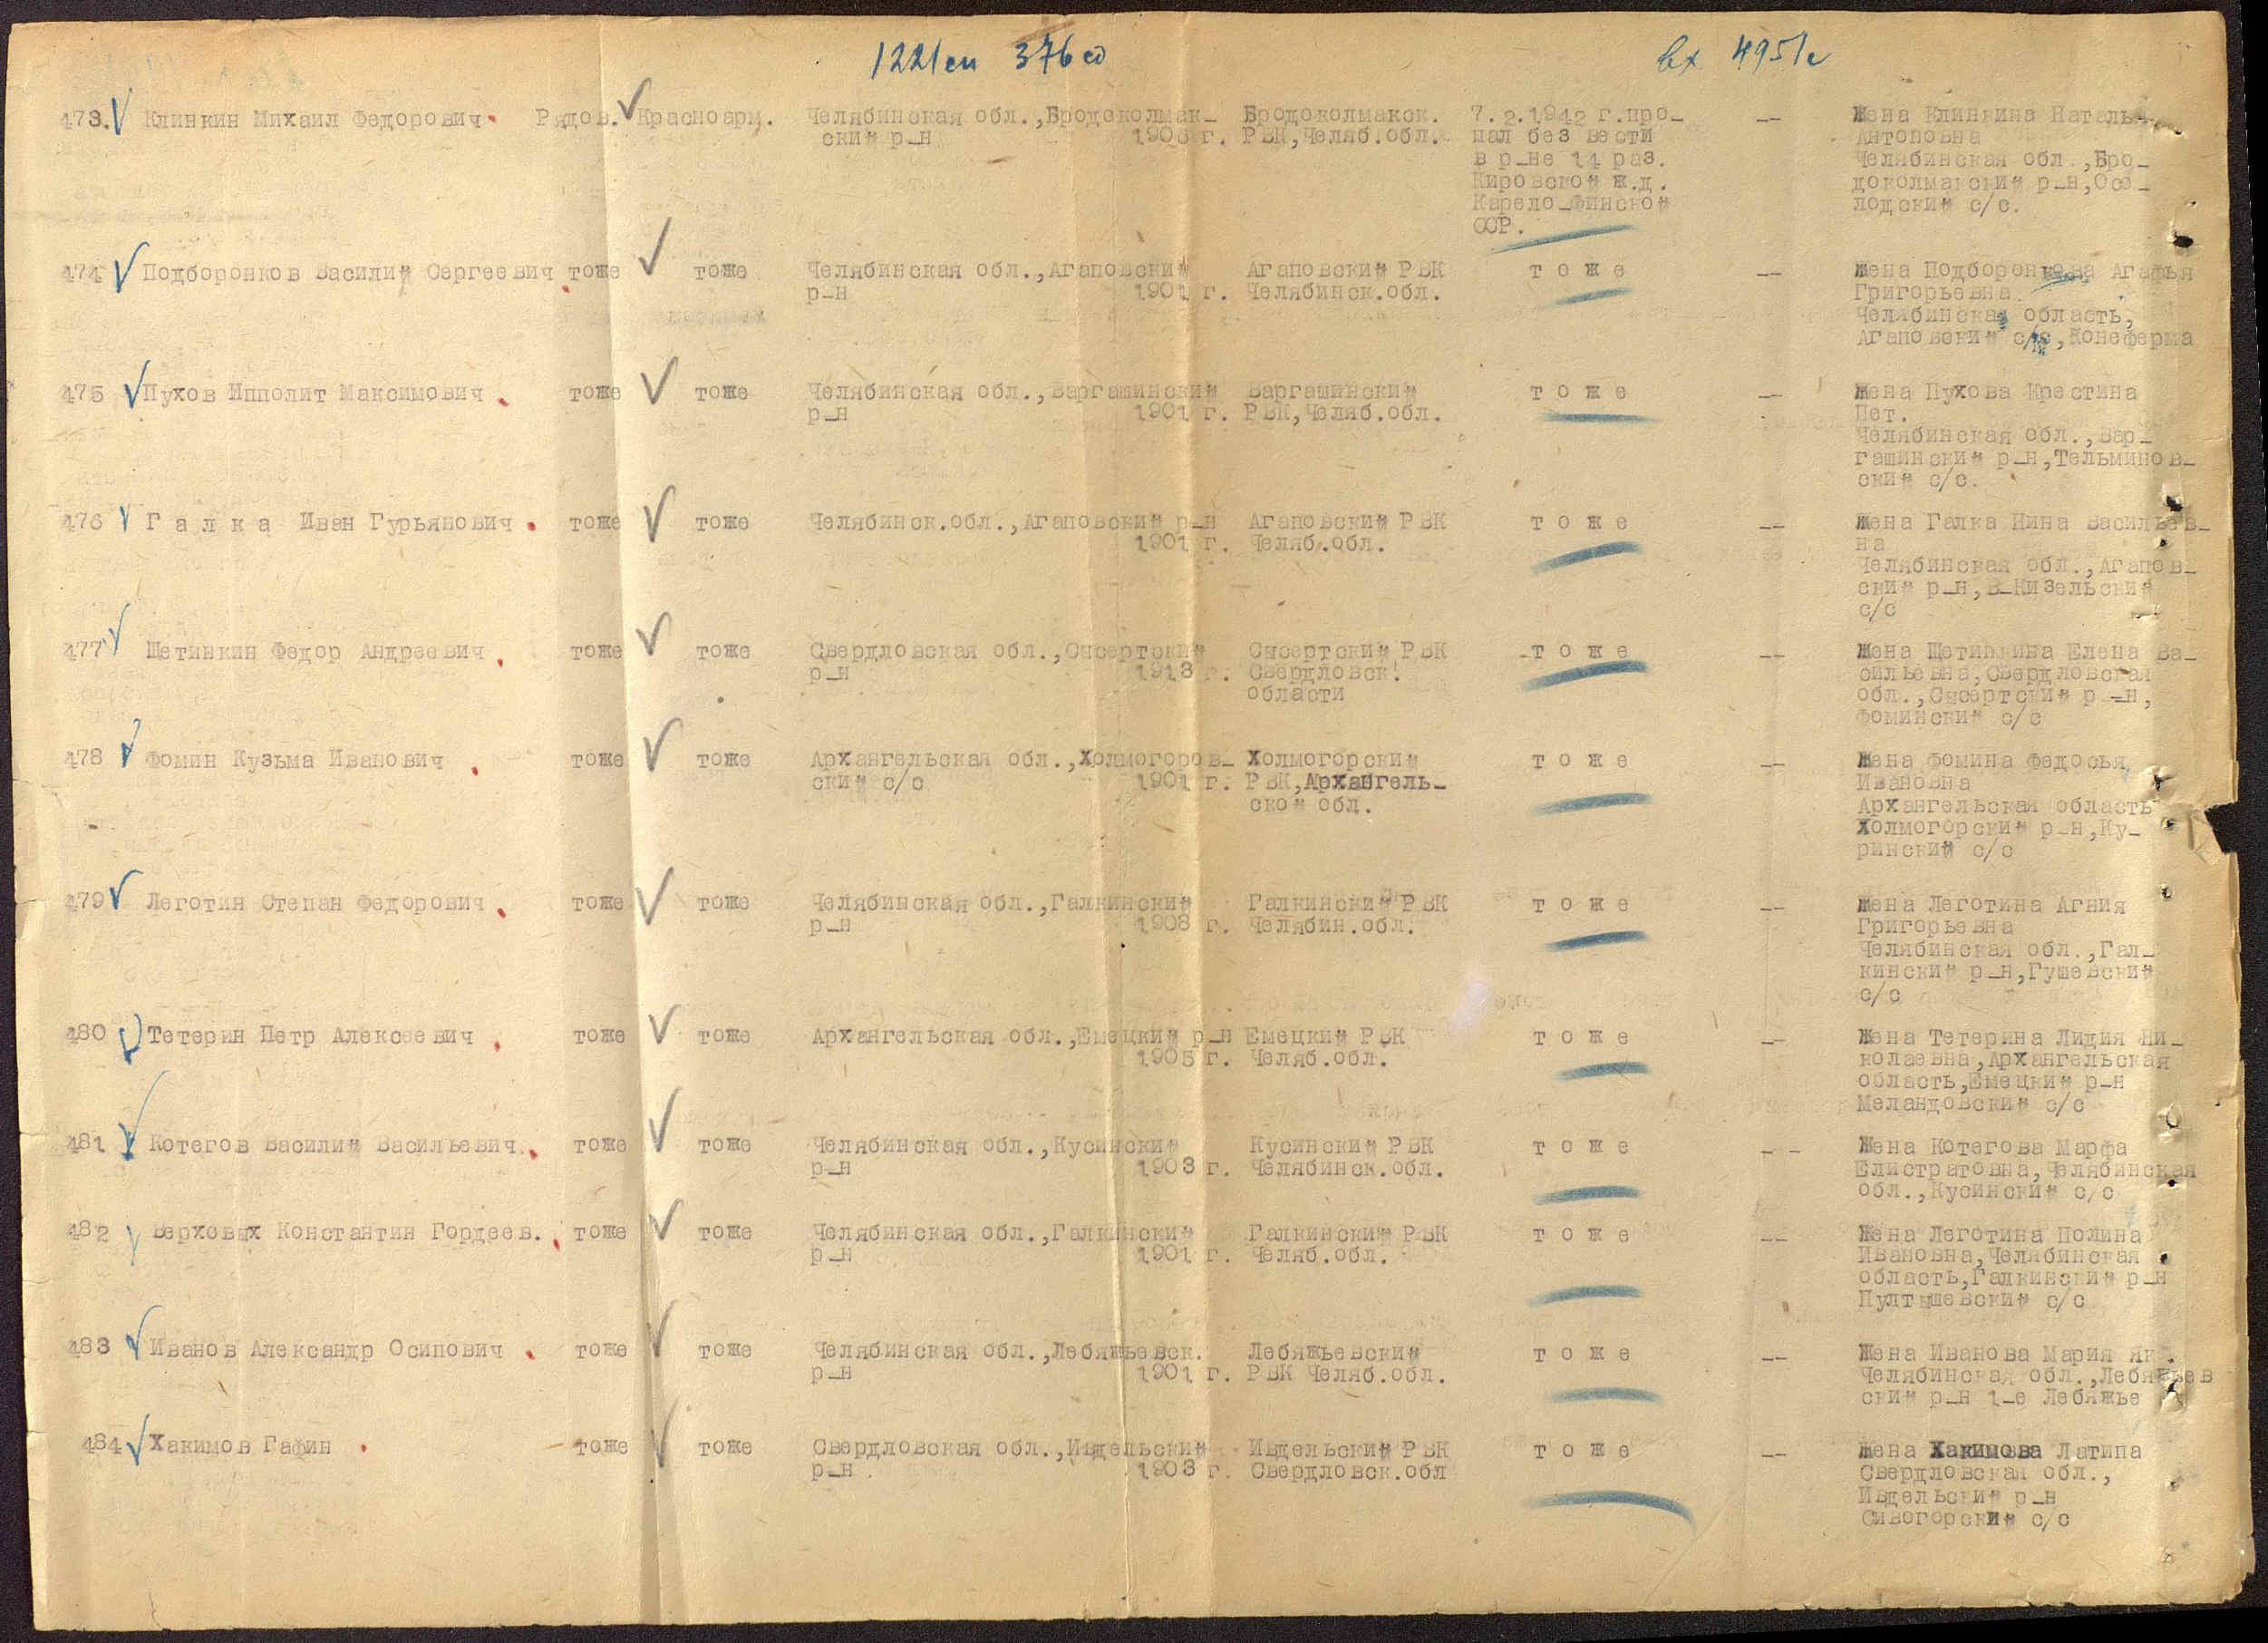 1221сп 376сд
вх 4951с
473. Клинкин Михаил Федорович Рядов. Красноарм. Челябинская обл.,Бродоколмак- Бродоколмакск. 7.2.1942 г.про- -- Жена Клинкина Наталья
ский р-н 1906 г. РВК,Челяб.обл. пал без вести Антоновна
в р-не 14 раз. Челябинская обл.,Бро-
Кировской ж.д. доколмакский р-н,Осо-
Карело-Финской лодский с/с.
ССР.
474 Подборонков Василий Сергеевич тоже тоже Челябинская обл.,Агаповский Агаповский РВК тоже -- Жена Подборонкова Агафья
р-н 1901 г. Челябинск.обл. Григорьевна
Челябинская область,
Агаповский с/с, Конеферма
475 Пухов Ипполит Максимович тоже тоже Челябинская обл.,Варгашинский Варгашинский тоже -- Жена Пухова Крестина
р-н 1901 г. РВК,Челяб.обл. Пет.
Челябинская обл.,Вар-
гашинский р-н,Тельминов-
ский с/с.
476 Галка Иван Гурьянович тоже тоже Челябинск.обл.,Агаповский р-н Агаповский РВК тоже -- Жена Галка Нина Васильев-
1901 г. Челяб.обл. на
Челябинская обл.,Агапов-
ский р-н,В-Кизельский
с/с
477 Щетинкин Федор Андреевич тоже тоже Свердловская обл.,Сысертский Сысертский РВК тоже -- Жена Щетинкина Елена Ва-
р-н 1913 г. Свердловск. сильевна,Свердловская
области обл.,Сысертский р-н,
Фоминский с/с
478 Фомин Кузьма Иванович тоже тоже Архангельская обл.,Холмогоров- Холмогорский тоже -- Жена Фомина Федосья
ский с/с 1901 г. РВК,Архангель- Ивановна
ской обл. Архангельская область
Холмогорский р-н,Ку-
ринский с/с
479 Леготин Степан Федорович тоже тоже Челябинская обл.,Галкинский Галкинский РВК тоже -- Жена Леготина Агния
р-н 1908 г. Челябин.обл. Григорьевна
Челябинская обл.,Гал-
кинский р-н,Гушевский
с/с
480 Тетерин Петр Алексеевич тоже тоже Архангельская обл.,Емецкий р-н Емецкий РВК тоже -- Жена Тетерина Лидия Ни-
1905 г. Челяб.обл. колаевна,Архангельская
область,Емецкий р-н
Меландовский с/с
481 Котегов Василий Васильевич тоже тоже Челябинская обл.,Кусинский Кусинский РВК тоже -- Жена Котегова Марфа
р-н 1903 г. Челябинск.обл. Елистратовна,Челябинская
обл.,Кусинский с/с
482 Верховых Константин Гордеев. тоже тоже Челябинская обл.,Галкинский Галкинский РВК тоже -- Жена Леготина Полина
р-н 1901 г. Челяб.обл. Ивановна,Челябинская
область,Галкинский р-н
Пултышевский с/с
483 Иванов Александр Осипович тоже тоже Челябинская обл.,Лебяжьевск. Лебяжьевский тоже -- Жена Иванова Мария Як.
р-н 1901 г. РВК Челяб.обл. Челябинская обл.,Лебяжьев
ский р-н 1-е Лебяжье
484 Хакимов Гафин тоже тоже Свердловская обл.,Ивдельский Ивдельский РВК тоже -- Жена Хакимова Латипа
р-н 1903 г. Свердловск.обл Свердловская обл.,
Ивдельский р-н
Сивогорский с/с